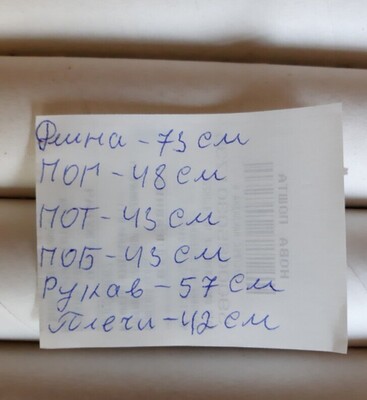 Длина - 73 см
ПОГ - 48 см
ПОТ - 43 см
ПОБ - 43 см
Рукав - 57 см
Плечи - 42 см
НОВА ПОШТА